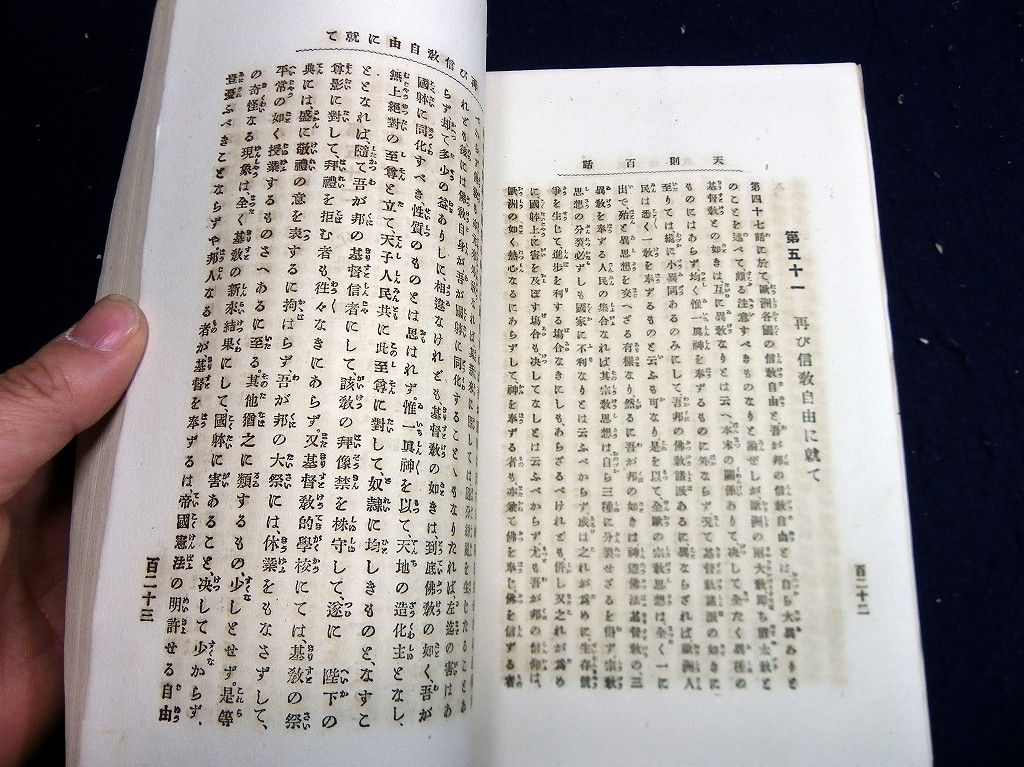 天則百話
第五十一　再び信敎自由に就て
第四十七話に於て歐洲各國の信敎自由と吾が邦の信敎自由とは、自ら大異ありと
のことを述べて頗る注意すべきものなりと論ぜしが歐洲の兩大敎即ち猶太敎と
基督敎との如きは互に異敎なりとは云へ本末の關係ありて、决して全たく異種の
ものにはあらず均く惟一眞神を奉ずるものに外ならず况て基督敎諸派の如きに
至りては纔に小異同あるのみにして吾邦の佛敎諸派あるに異ならざれば歐洲人
民は悉く一敎を奉ずるものと云ふも可なり是を以て全歐の宗敎思想は全く一に
出で、殆と異思想を交へざる有樣なり然るに吾が邦の如きは神道佛法基督敎の三
異敎を奉ずる人民の集合なれば其宗敎思想は自ら三種に分裂せざるを得ず宗敎
思想の分裂必ずしも國家に不利なりとは云ふべからず或は之れが爲めに、生存競
爭を生じて進步を利する塲合なきにしもあらざるべけれども併し又之れが爲め
に國躰上に害を及ぼす塲合も决してなしとは云ふべからず尤も吾が邦の信仰は、
歐洲の如く熱心なるにあらずして神を奉ずる者も亦兼て佛を奉じ佛を信ずる者
百二十二
再び信敎自由に就て
れども後には佛敎自身が吾が國躰に同化することゝもなりたれば、左迄の害はあ
らず却て多少の益ありしに相違なけれども、基督敎の如きは、到底佛敎の如く、吾が
國躰に同化すべき性質のものとは思はれず。惟一眞神を以て、天地の造化主となし、
無上絕對の至尊と立て、天子人民共に此至尊に對して、奴隷に均しきものと、なすこ
ととなれば、隨て吾が邦の基督信者にして、該敎の拜像禁を株守して、遂に　陛下の
尊影に對して、拜禮を拒む者も往々なきにあらず。又基督敎的學校にては、基敎の祭
典には、盛に敬禮の意を表するに拘はらず、吾が邦の大祭には、休業をもなさずして、
平常の如く授業するものさへあるに至る。其他猶之に類するもの、少しとせず。是等
の奇怪なる現象は、全く基敎の新來結果にして、國躰に害あること、决して少からず、
豈憂ふべきことならずや邦人なる者が、基督を奉ずるは、帝國憲法の明許せる自由
百二十三